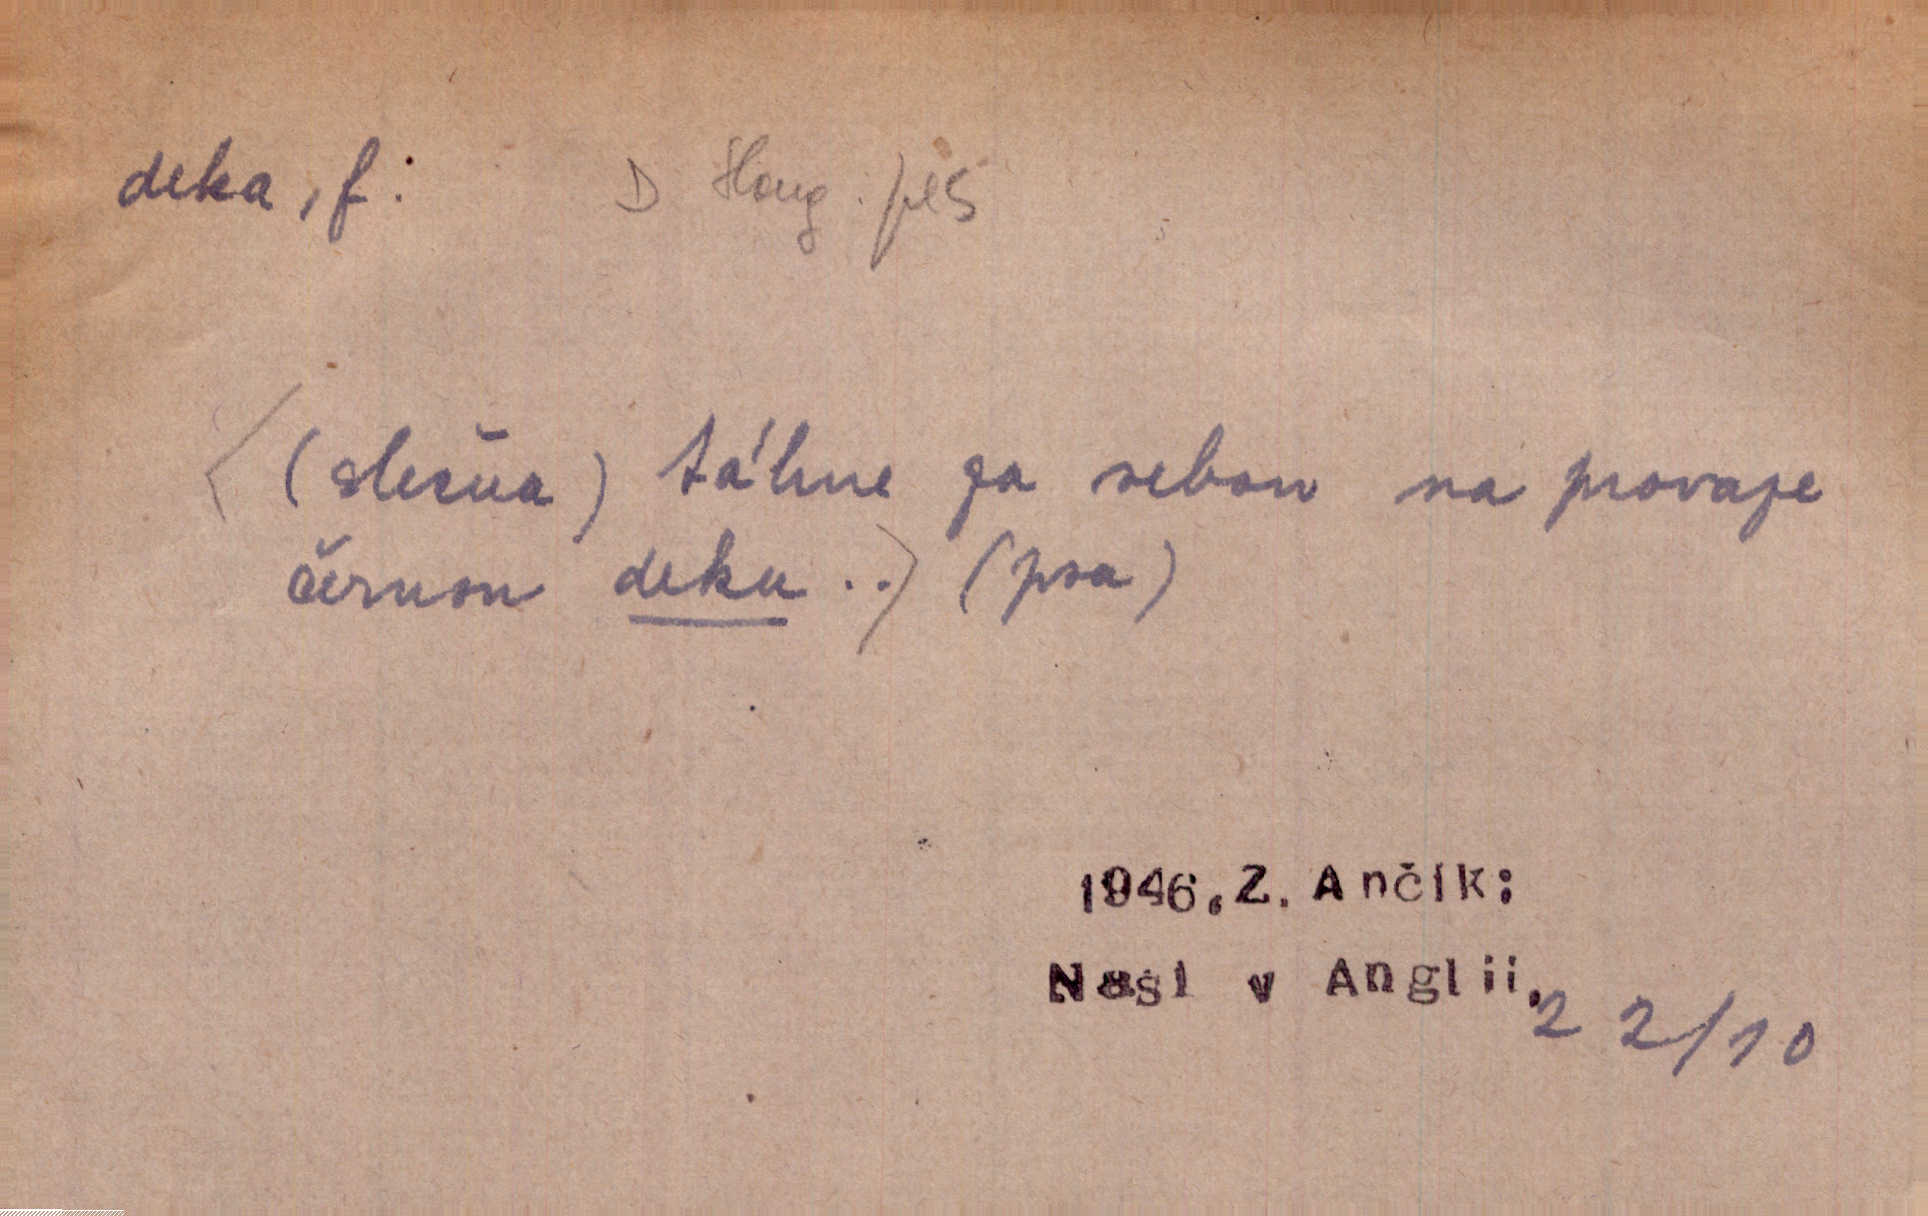 deka, f: D slang. pes
(slečna) táhne za sebou na provaze
černou deku ..> (psa)
1946, Z. Ančík:
Naši v Anglii,
2 2/10